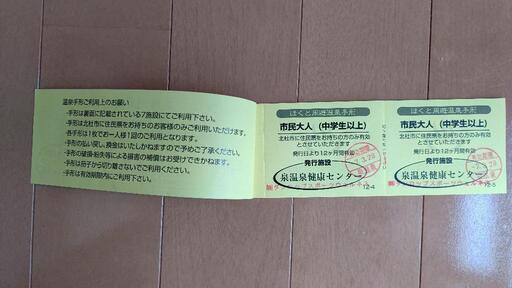 温泉手形ご利用上のお願い
・手形は裏面に記載されている7施設にてご利用下さい。
・手形は北杜市に住民票をお持ちのお客様のみご利用いただけます。
・各手形は1枚でお一人様1回のご利用となります。
・手形の払い戻し、換金はいたしかねますので予めご了承ください。
・手形の破損・紛失等による損害の補償はお受けできかねます。
・手形は冊子から切り離さないでご利用ください。
・手形は有効期限内にご利用下さい。
ほくと周遊温泉手形
市民大人（中学生以上）
北杜市に住民票をお持ちの方のみ有効
とさせていただきます
発行日より12ヶ月間有効
発行施設
泉温泉健康センター
12-4
ほくと周遊温泉手形
市民大人（中学生以上）
北杜市に住民票をお持ちの方のみ有効
とさせていただきます
発行日より12ヶ月間有効
発行施設
泉温泉健康センター
12-5